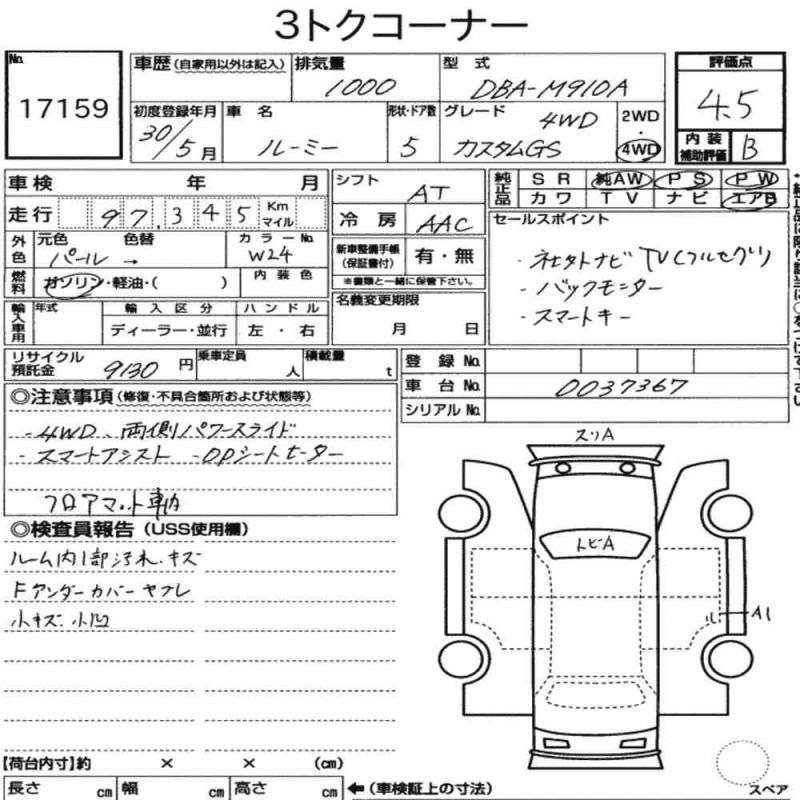 3トクコーナー
No. 17159
車歴(自家用以外は記入) 排気量 1000 型式 DBA-M910A
初度登録年月 30/5月 車名 ルーミー 形状・ドア数 5 グレード 4WD カスタムGS 2WD・4WD
評価点 4.5
内装補助評価 B
車検 年 月
走行 97,345 Km マイル
外色 元色 パール 色替 → カラーNo. W24
燃料 ガソリン・軽油・( ) 内装色
輸入車用 年式 輸入区分 ディーラー・並行 ハンドル 左・右
シフト AT
冷房 AAC
新車整備手帳(保証書付) 有・無
※書類と一緒に保管下さい。
名義変更期限 月 日
純正品 SR 純AW PS PW
カワ TV ナビ エアB
セールスポイント
・社外ナビ TV(フルセグ)
・バックモニター
・スマートキー
リサイクル預託金 9130円 乗車定員 人 積載量 t
登録No.
車台No. 0037367
シリアルNo.
◎注意事項(修復・不具合箇所および状態等)
・4WD、両側パワースライド
・スマートアシスト ・OPシートヒーター
フロアマット車内
◎検査員報告(USS使用欄)
ルーム内1部汚れ、キズ
Fアンダーカバーヤブレ
小キズ 小凹
スリA
トビA
A1
【荷台内寸】約 × × (cm)
長さ cm 幅 cm 高さ cm ←(車検証上の寸法)
スペア